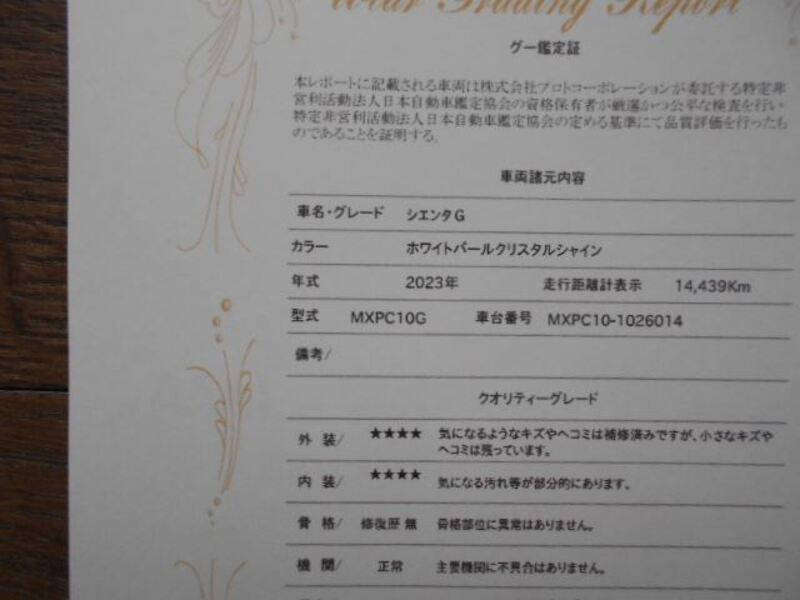 Trading Report
グー鑑定証
本レポートに記載される車両は株式会社プロトコーポレーションが委託する特定非
営利活動法人日本自動車鑑定協会の資格保有者が厳選かつ公平な検査を行い
特定非営利活動法人日本自動車鑑定協会の定める基準にて品質評価を行ったも
のであることを証明する。
車両諸元内容
車名・グレード シエンタG
カラー ホワイトパールクリスタルシャイン
年式 2023年 走行距離計表示 14,439Km
型式 MXPC10G 車台番号 MXPC10-1026014
備考/
クオリティーグレード
外 装/ ★★★★ 気になるようなキズやヘコミは補修済みですが、小さなキズや
ヘコミは残っています。
内 装/ ★★★★ 気になる汚れ等が部分的にあります。
骨 格/ 修復歴 無 骨格部位に異常はありません。
機 関/ 正常 主要機関に不具合はありません。